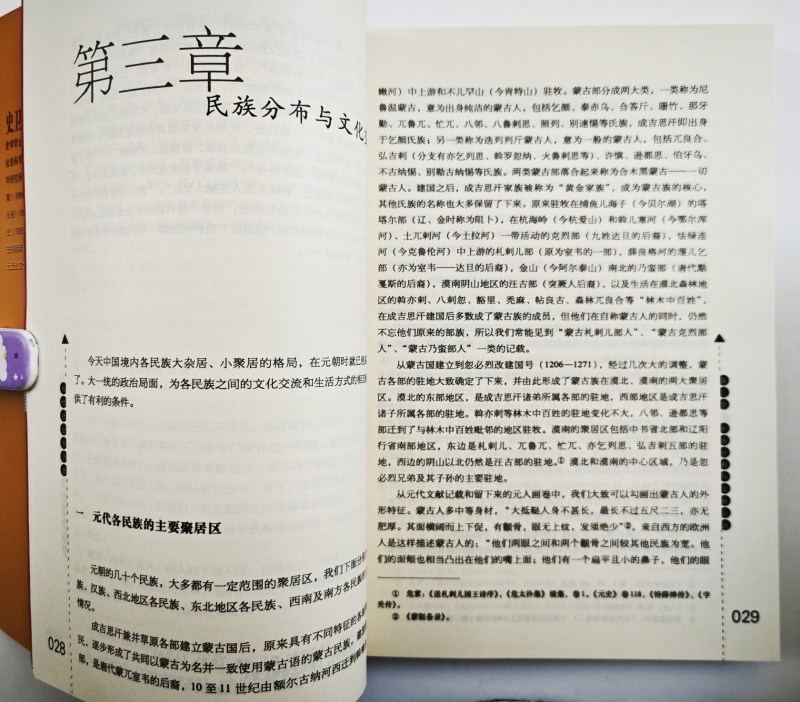 第三章
民族分布与文化
今天中国境内各民族大杂居、小聚居的格局，在元朝时就已
了。大一统的政治局面，为各民族之间的文化交流和生活方式的相
供了有利的条件。
一 元代各民族的主要聚居区
元朝的几十个民族，大多都有一定范围的聚居区，我们下面
族、汉族、西北地区各民族、东北地区各民族、西南及南方各民
情况。
成吉思汗兼并草原各部建立蒙古国后，原来具有不同特征的各
民，逐步形成了共同以蒙古为名并一致使用蒙古语的蒙古民族。
部，是唐代蒙兀室韦的后裔，10至11世纪由额尔古纳河西迁到
028
嫩河）中上游和不儿罕山（今肯特山）驻牧。蒙古部分成两大类，一类称为尼
鲁温蒙古，意为出身纯洁的蒙古人，包括乞颜、泰赤乌、合答斤、珊竹、那牙
勤、兀鲁兀、忙兀、八邻、八鲁剌思、照列、别速惕等氏族，成吉思汗即出身
于乞颜氏族；另一类称为迭列列斤蒙古人，意为一般的蒙古人，包括兀良合、
弘吉剌（分支有亦乞列思、斡罗忽纳、火鲁剌思等）、许慎、逊都思、伯牙乌、
不古纳惕、别勒古纳惕等氏族。两类蒙古部落合起来称为合木黑蒙古——一切
蒙古人。建国之后，成吉思汗家族被称为“黄金家族”，成为蒙古族的核心，
其他氏族的名称也大多保留了下来。原来驻牧在捕鱼儿海子（今贝尔湖）的塔
塔尔部（辽、金时称为阻卜），在杭海岭（今杭爱山）和斡儿寒河（今鄂尔浑
河）、土兀剌河（今土拉河）一带活动的克烈部（九姓达旦的后裔），怯绿连
河（今克鲁伦河）中上游的札剌儿部（原为室韦的一部），薛良格河的蔑儿乞
部（亦为室韦——达旦的后裔），金山（今阿尔泰山）南北的乃蛮部（唐代黠
戛斯的后裔），漠南阴山地区的汪古部（突厥人后裔），以及生活在漠北森林地
区的斡亦剌、八剌忽、豁里、秃麻、帖良古、森林兀良合等“林木中百姓”，
在成吉思汗建国后多数成了蒙古族的成员，但他们在自称蒙古人的同时，仍然
不忘他们原来的部族，所以我们常能见到“蒙古札剌儿部人”、“蒙古克烈部
人”、“蒙古乃蛮部人”一类的记载。
从蒙古国建立到忽必烈改建国号（1206—1271），经过几次大的调整，蒙
古各部的驻地大致确定了下来，并由此形成了蒙古族在漠北、漠南的两大聚居
区。漠北的东部地区，是成吉思汗诸弟所属各部的驻地，西部地区是成吉思汗
诸子所属各部的驻地。斡亦剌等林木中百姓的驻地变化不大，八邻、逊都思等
部迁到了与林木中百姓毗邻的地区驻牧。漠南的聚居区包括中书省北部和辽阳
行省南部地区，东边是札剌儿、兀鲁兀、忙兀、亦乞列思、弘吉剌五部的驻
地，西边的阴山以北仍然是汪古部的驻地。①漠北和漠南的中心区域，乃是忽
必烈兄弟及其子孙的主要驻地。
从元代文献记载和留下来的元人画卷中，我们大致可以勾画出蒙古人的外
形特征。蒙古人多中等身材，“大抵鞑人身不甚长，最长不过五尺二三，亦无
肥厚。其面横阔而上下促，有颧骨，眼无上纹，发须绝少”②。来自西方的欧洲
人是这样描述蒙古人的：“他们两眼之间和两个颧骨之间较其他民族为宽。他
们的面颊也相当凸出在他们的嘴上面；他们有一个扁平且小的鼻子，他们的眼
① 危素：《送札剌儿国王诗序》，《危太朴集》续集，卷1。《元史》卷118，《特薛禅传》、《孛
秃传》。
② 《蒙鞑备录》。
029